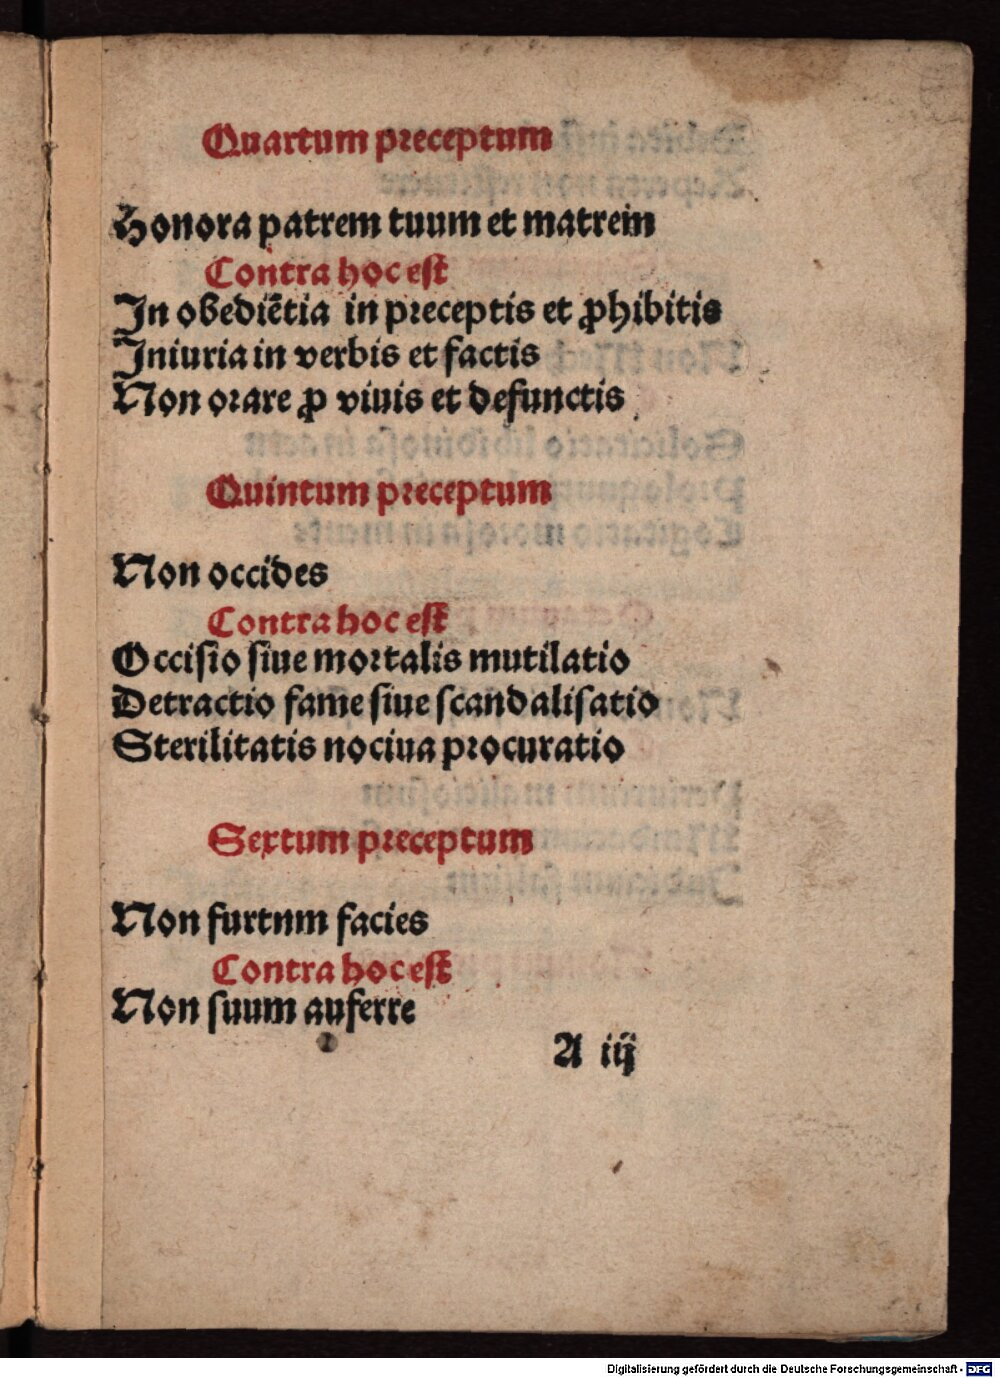 Quartum preceptum
Honora patrem tuum et matrem
Contra hoc est
In obediētia in preceptis et ꝓhibitis
Iniuria in verbis et factis
Non orare ꝓ viuis et defunctis
Quintum preceptum
Non occides
Contra hoc est
Occisio siue mortalis mutilatio
Detractio fame siue scandalisatio
Sterilitatis nociua procuratio
Sextum preceptum
Non furtnm facies
Contra hoc est
Non suum auferre
A iij
Digitalisierung gefördert durch die Deutsche Forschungsgemeinschaft - DFG